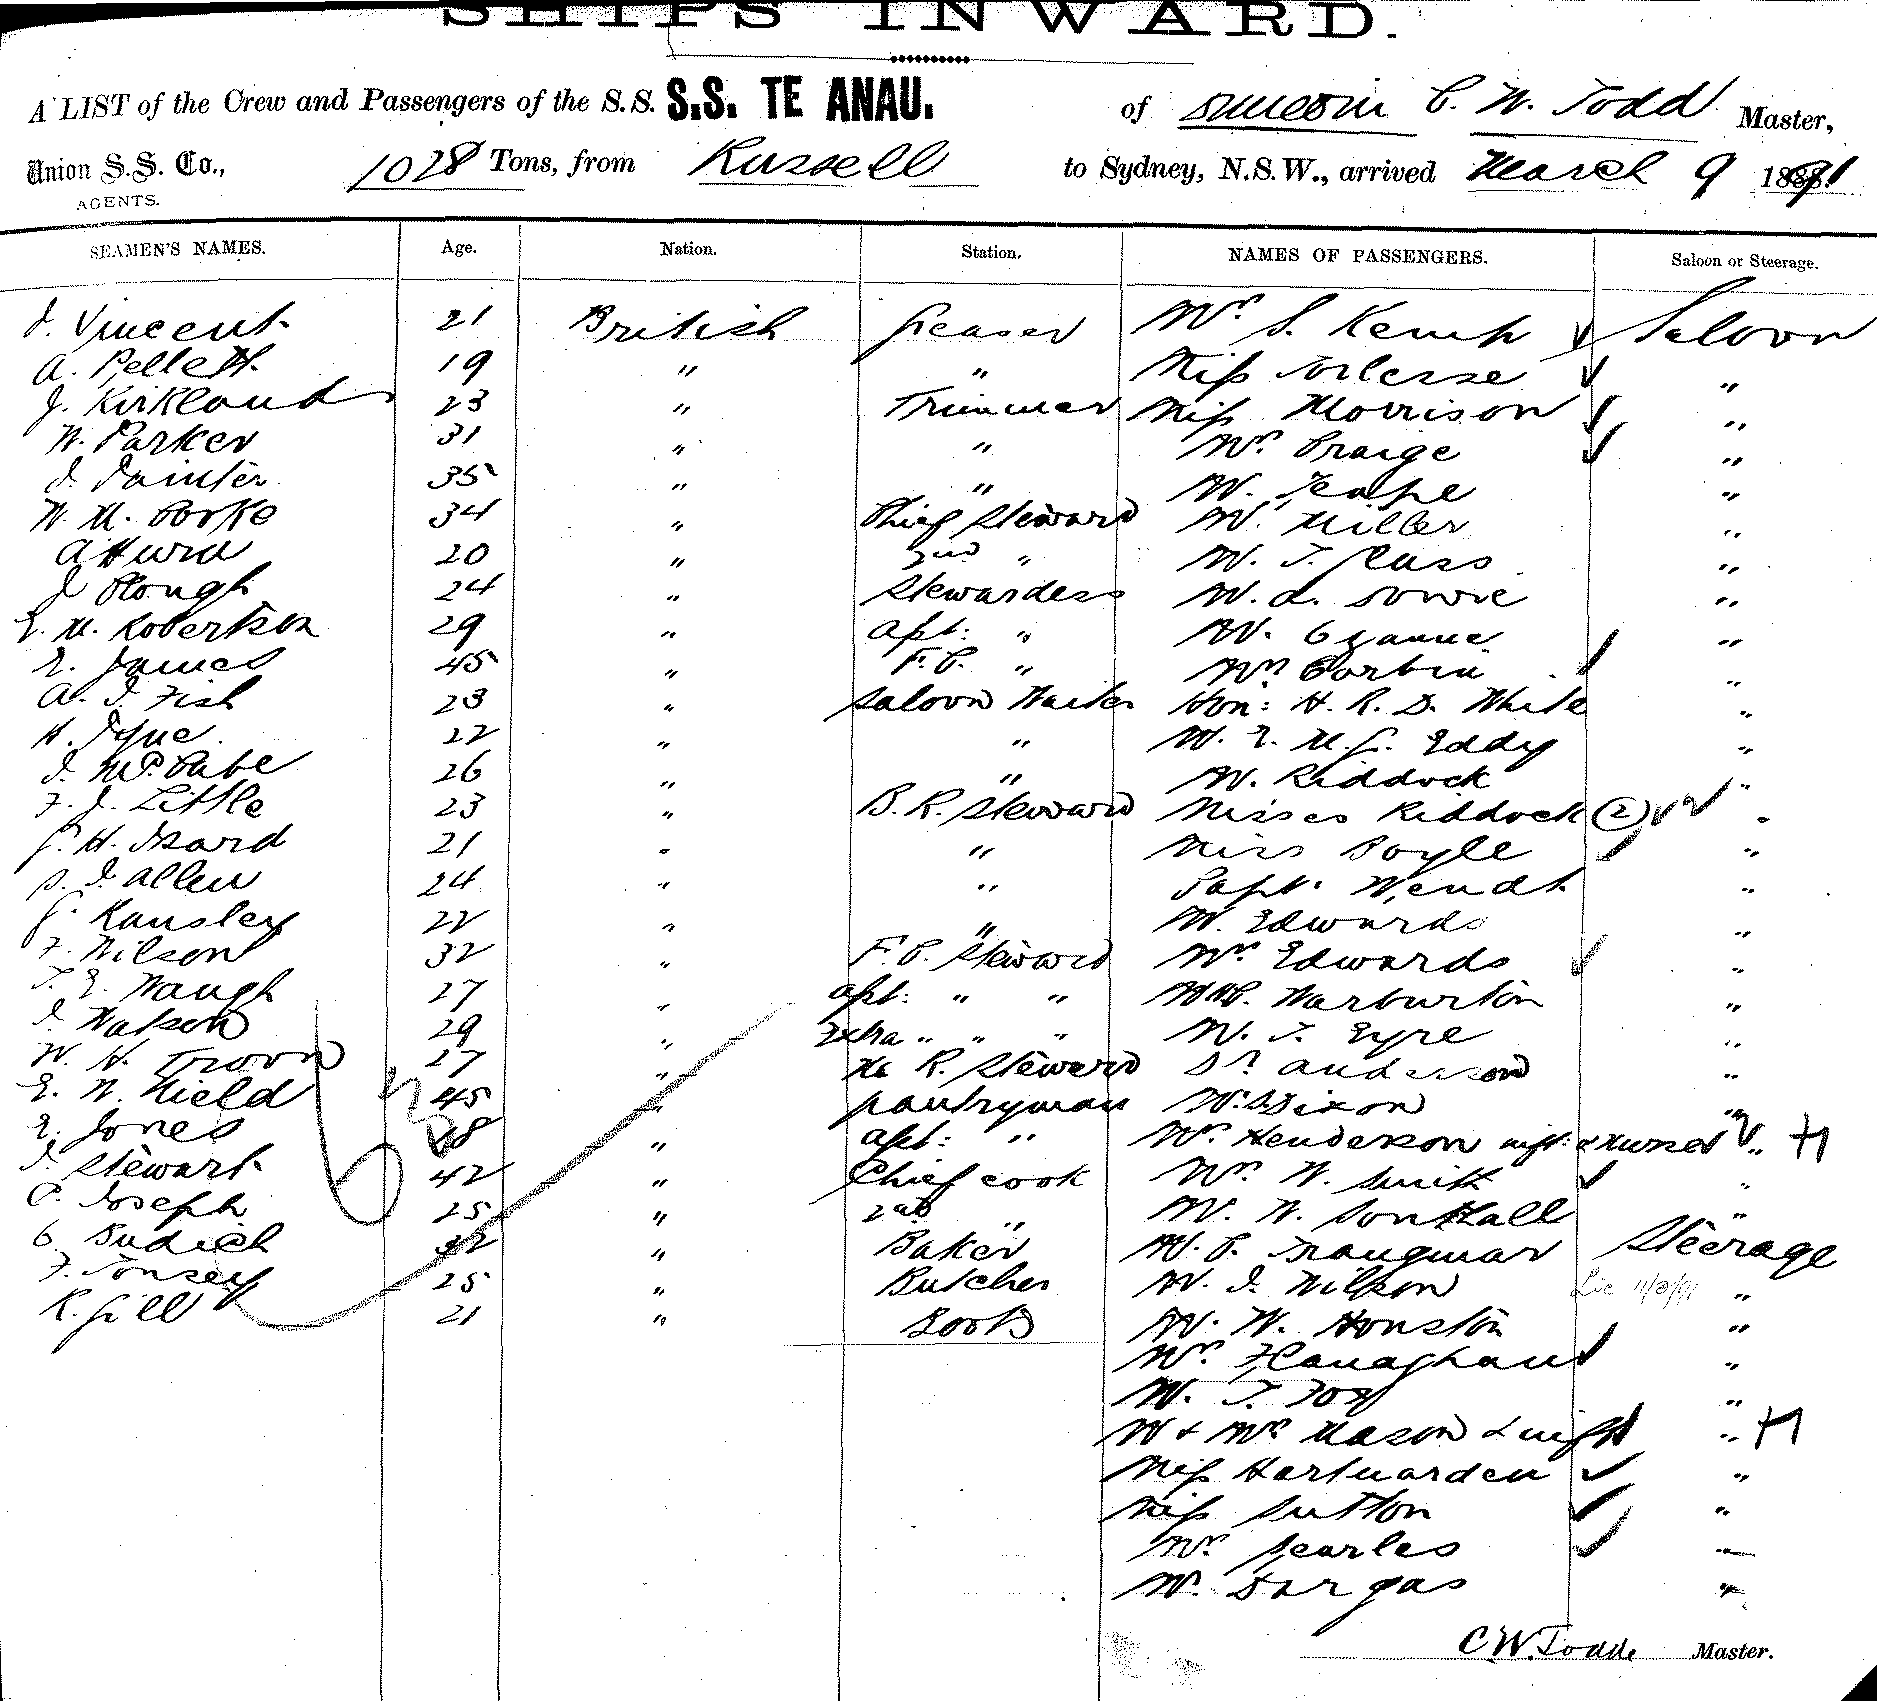 SHIPS INWARD.
A LIST of the Crew and Passengers of the S.S. S.S. TE ANAU. of Dunedin C. W. Todd Master,
Union S.S. Co., 1028 Tons, from Russell to Sydney, N.S.W., arrived March 9 1891
AGENTS.
SEAMEN'S NAMES. Age. Nation. Station. NAMES OF PASSENGERS. Saloon or Steerage.
J. Vincent 21 British Greaser Mrs S. Kemp Saloon
A. Pellett 19 " " Miss "
J. Kirkland 23 " Trimmer Miss Morrison "
W. Parker 31 " " Mrs Craige "
J. Painter 35 " " Mr. Teape "
W. M. 34 " Chief Steward Mr. Miller "
A Hurd 20 " 2nd " Mr. T. Cass "
J Clough 24 " Stewardess Mr. A. Dowie "
E. M. Robertson 29 " Asst: " Mr. "
E. James 45 " F.C. " Mrs Corbin "
A. J. Fish 23 " Saloon Waiter Hon: H. R. D. White "
H. Pyne 22 " " Mr. E. M. G. Eddy "
J. McCabe 26 " " Mr. Riddock "
F. J. Little 23 " B. R. Steward Misses Riddock (2) "
G. H. Izard 21 " " Miss Boyle "
S. J. Allen 24 " " Capt. Wendt "
G. Kansley 22 " " Mr. Edwards "
F. Wilson 32 " F. C. Steward Mrs Edwards "
T. E. Waugh 27 " Asst: " " Mr C. Warburton "
J. Watson 29 " Extra " " " Mr. T. Eyre "
W. H. Troon 27 " R. Steward Dr. Anderson "
E. W. Nield 45 " Pantryman Mr. Dixon "
E. Jones 18 " Asst: " Mrs Henderson inft: & nurse " H
J. Stewart 42 " Chief cook Mrs W. Smith "
C. Joseph 25 " 2nd " Mr. W. "
C. Budich 32 " Baker Mr. C. Trangmar Steerage
F. Tonsey 25 " Butcher Mr. J. Wilson "
R. Gill 21 " Boots Mr. W. Houston "
Mrs Flanaghan "
Mr. T. Fox "
Mr & Mrs Mason & inft " H
Miss "
Miss Sutton "
Mrs Searles "
Mr. Dargas "
C W. Todd. Master.